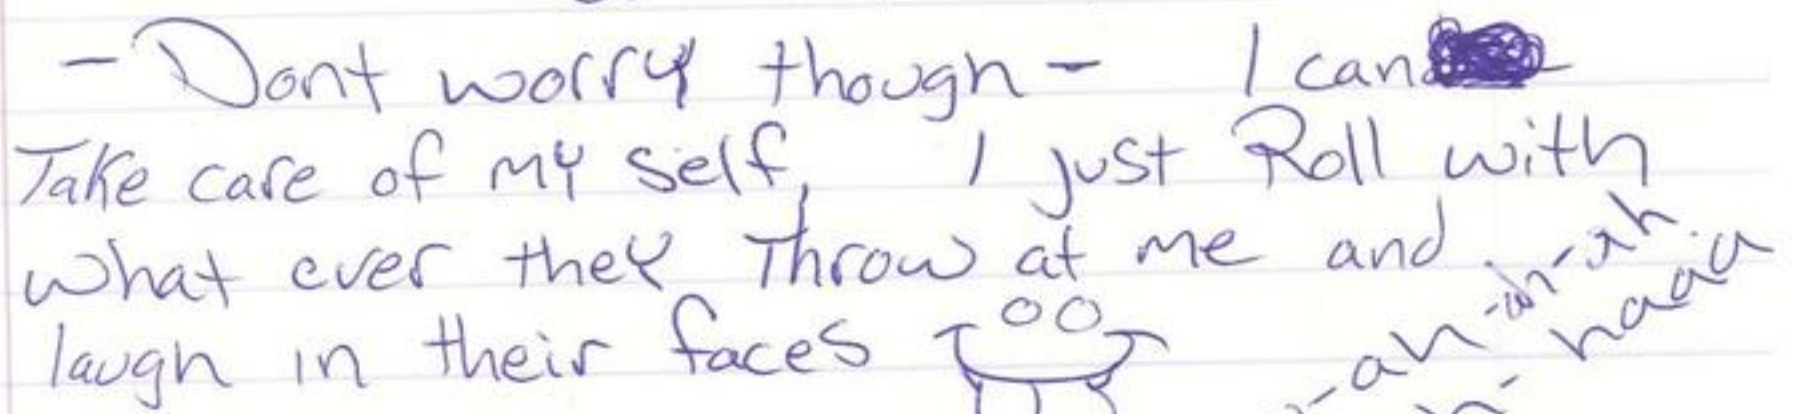 - Dont worry though - I can
Take care of my self, I just Roll with
what ever they Throw at me and
laugh in their faces